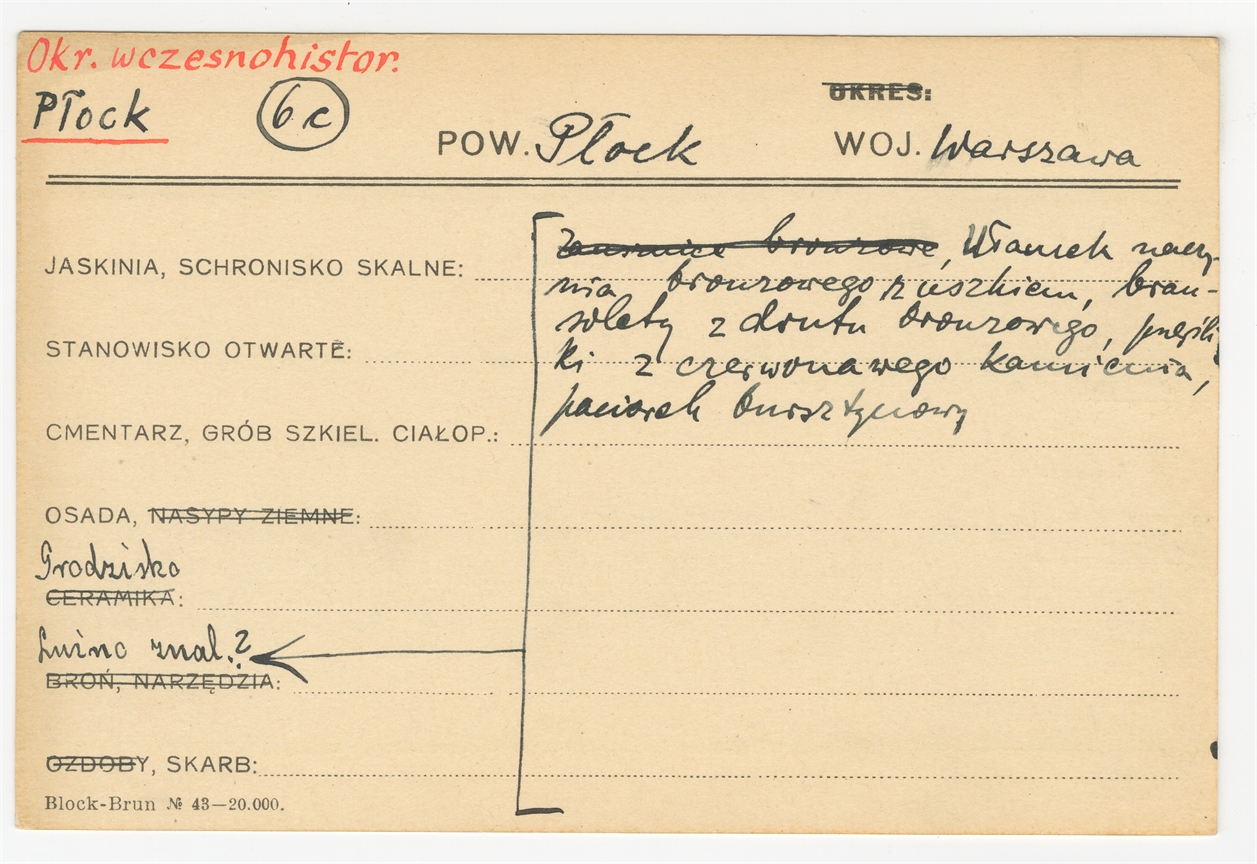 Okr. wczesnohistor.
Płock 6c
OKRES:
POW. Płock WOJ. Warszawa
JASKINIA, SCHRONISKO SKALNE:
STANOWISKO OTWARTE:
CMENTARZ, GRÓB SZKIEL. CIAŁOP.:
OSADA, NASYPY ZIEMNE:
Grodzisko
CERAMIKA:
Luźne znal.?
BROŃ, NARZĘDZIA:
OZDOBY, SKARB:
Block-Brun № 43—20.000.
Zausznice bronzowe, Ułamek naczy-
nia bronzowego z uszkiem, bran-
solety z drutu bronzowego, przęśli-
ki z czerwonawego kamienia,
paciorek bursztynowy